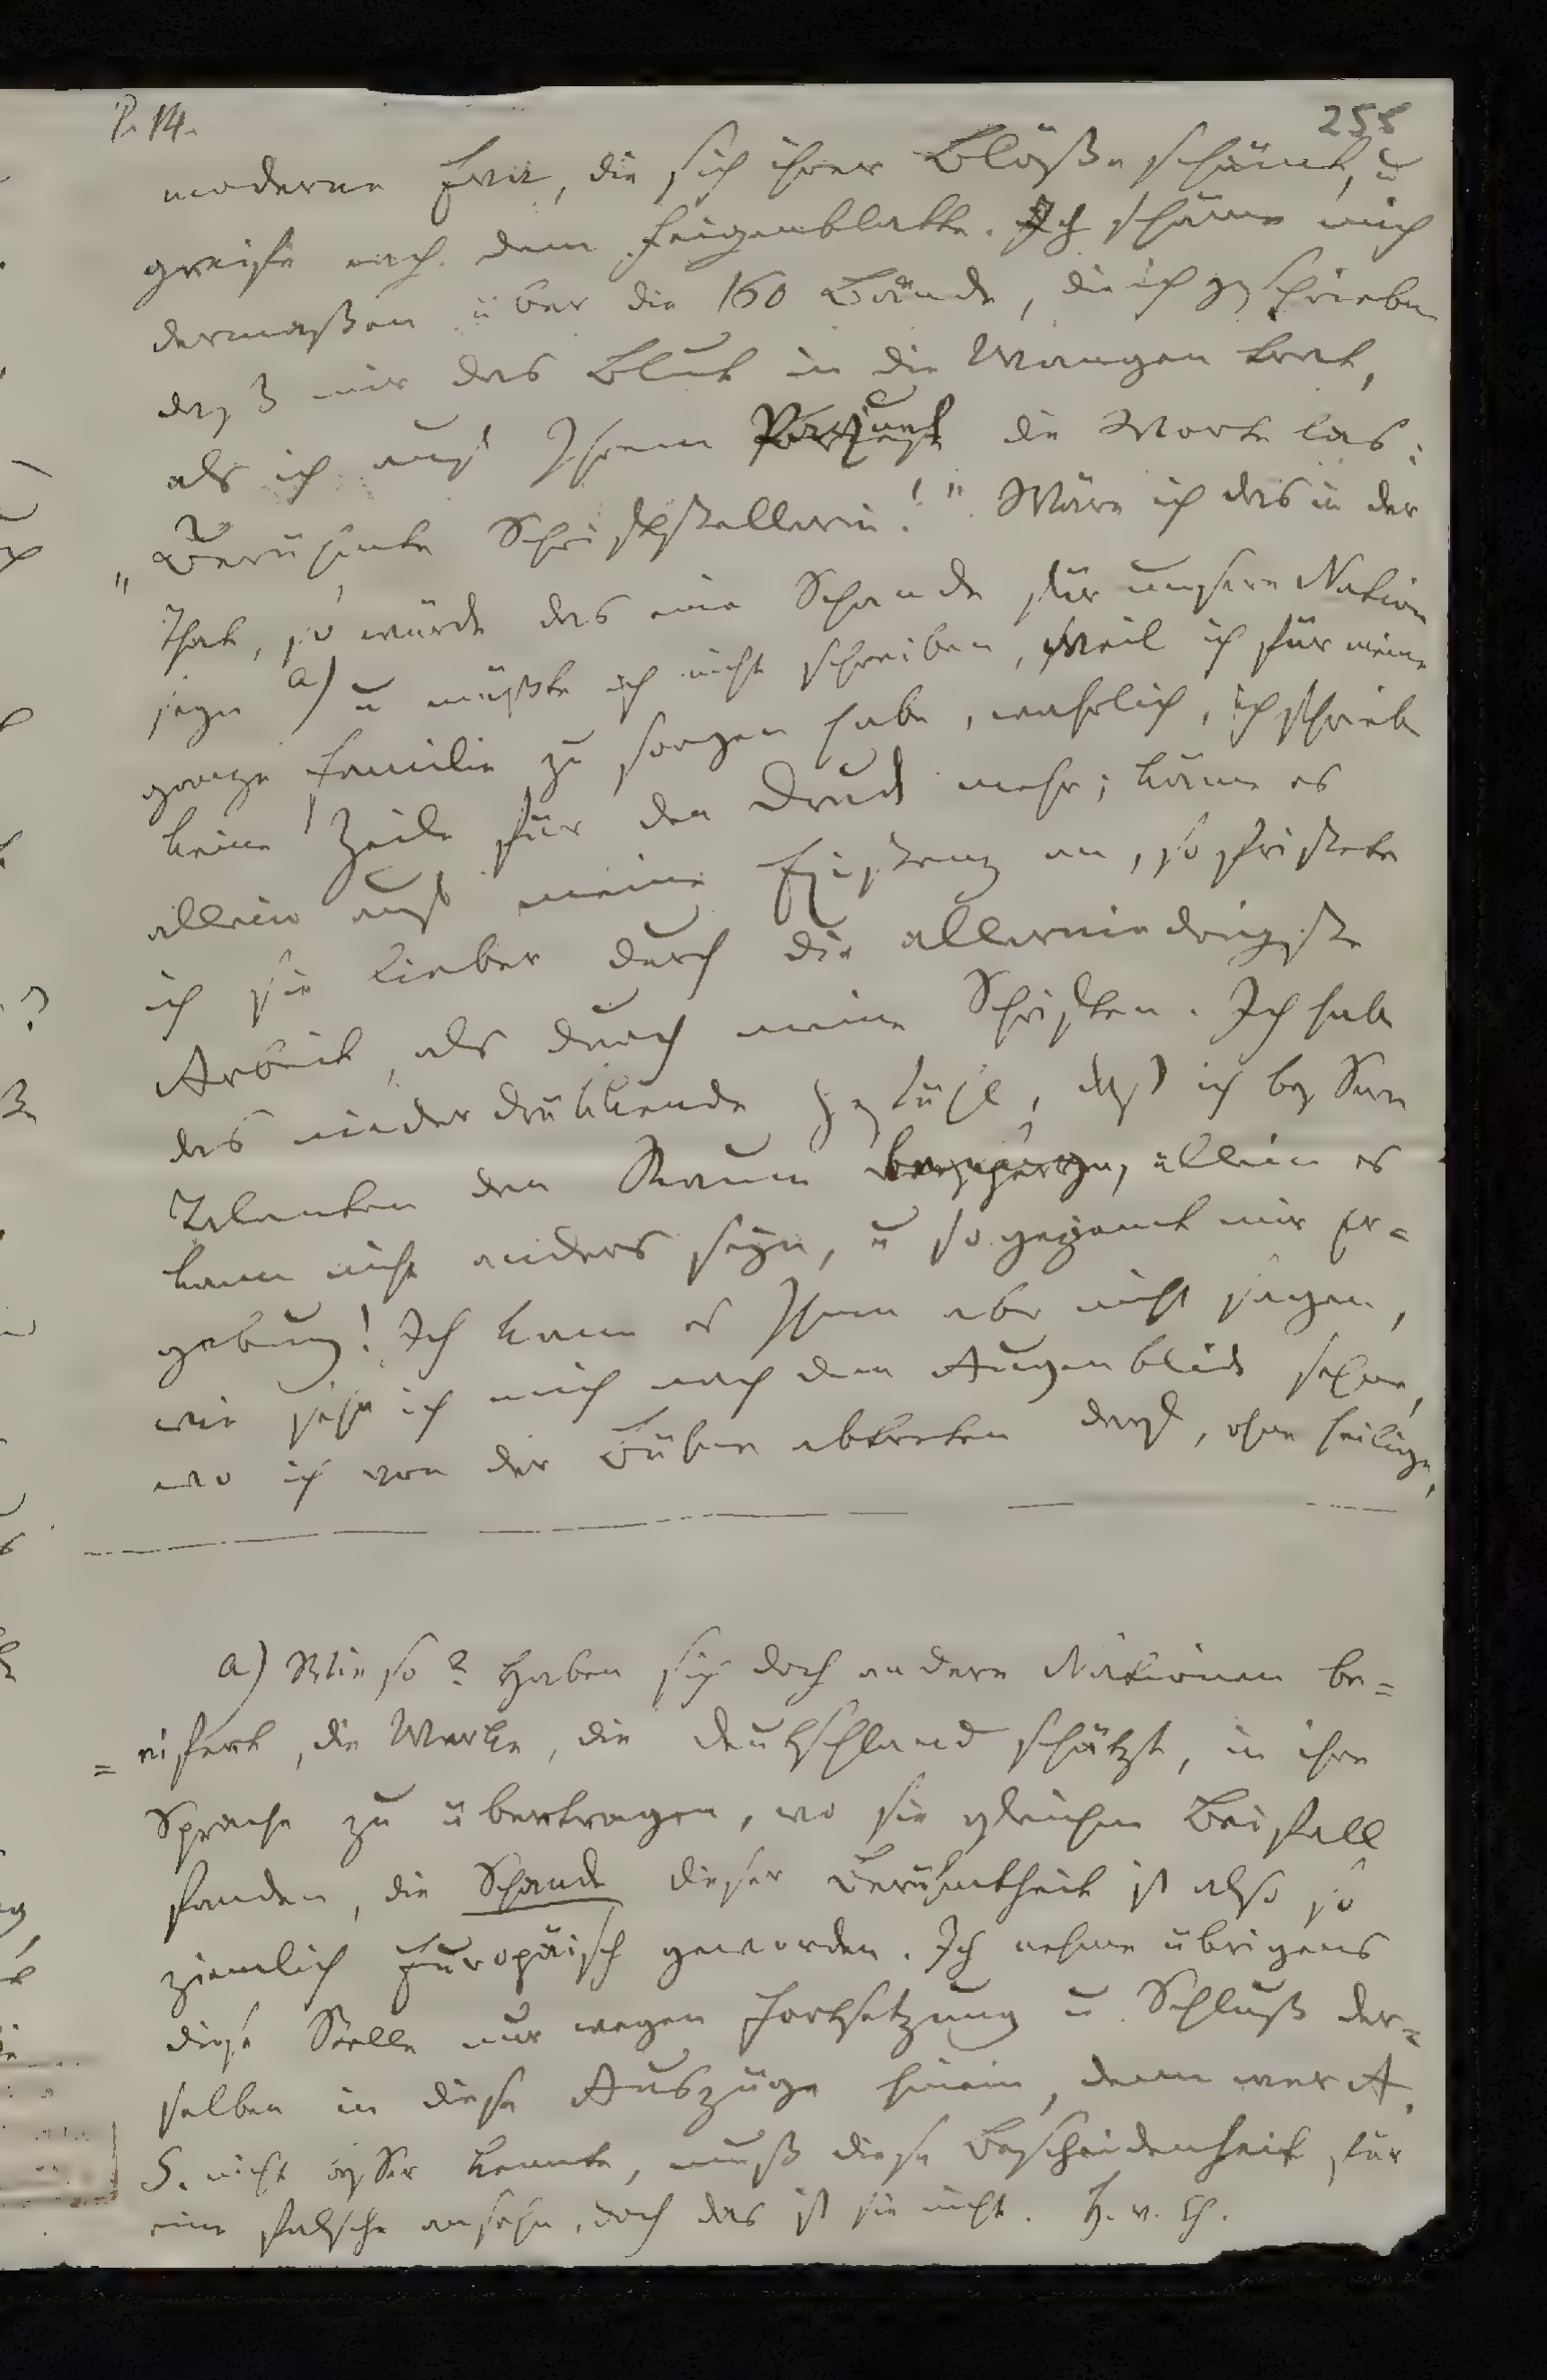 P. 14.
255
moderne Eva, die sich ihrer Blöße schämt, u
greife nach dem Feigenblatte. Ich schäme mich
dermaßen über die 160 Bände, die ich geschrieben
daß mir das Blut in die Wangen trat,
als ich auf Ihrem die Worte las:
„Berühmte Schriftstellerin!" Wäre ich das in der
That, so würde das eine Schande für unsere Nation
seyn a) u müßte ich nicht schreiben, weil ich für meine
ganze Familie zu sorgen habe, wahrlich, ich schriebe
keine Zeile für den Druck mehr; käme es
allein auf meine Existenz an, so fristete
ich sie lieber durch die allerniedrigste
Arbeit, als durch meine Schriften. Ich habe
das niederdrükkende Gefühl, daß ich bessern
Talenten den Raum allein es
kann nicht anders seyn, u so geziemt mir Er=
gebung! Ich kann es Ihnen aber nicht sagen,
wie sehr ich mich nach dem Augenblick sehne,
wo ich von der Bühne abtreten darf, ohne heilige,
a) Wie so? Haben sich doch andere Nationen be=
=eifert, die Werke, die Deutschland schätzt, in ihre
Sprache zu übertragen, wo sie gleichen Beifall
fanden, die Schande dieser Berühmtheit ist also so
ziemlich Europäisch geworden. Ich nehme übrigens
diese Stelle nur wegen Fortsetzung u Schluß der=
selben in diese Auszüge hinein, denn wer A.
S. nicht besser kennte, muß diese Bescheidenheit für
eine falsche ansehn, doch das ist sie nicht. H. v. Ch.